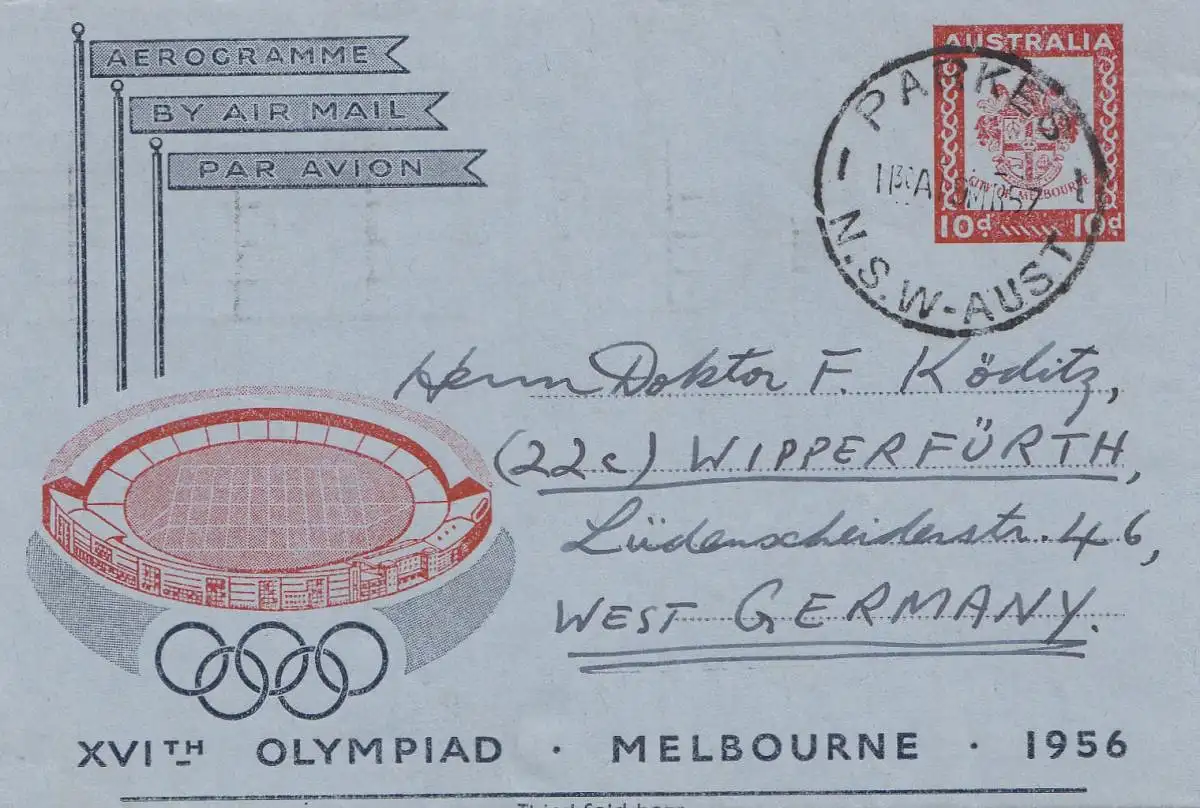 AEROGRAMME
BY AIR MAIL
PAR AVION
AUSTRALIA
CITY OF MELBOURNE
10d 10d
PARKES
N.S.W-AUST
Herrn Doktor F. Köditz,
(22c) WIPPERFÜRTH,
Lüdenscheiderstr. 46,
WEST GERMANY.
XVITH OLYMPIAD · MELBOURNE · 1956